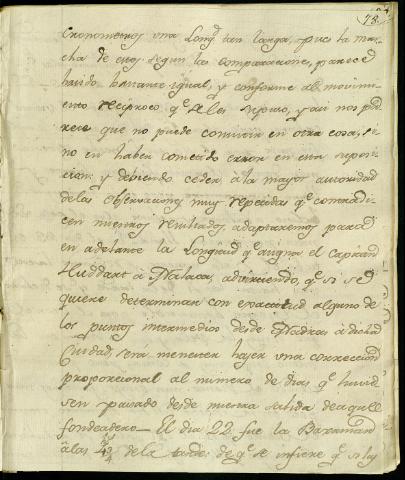 78.
Cronometros una Longd tan larga, pues la mar-
cha de estos segun las comparaciones, parece
havido bastante igual, y conforme al movimi-
ento reciproco qe se les supuso, y asi nos pa-
rece que no puede consistir en otra cosa, si-
no en haber cometido error en esta suposi-
cion: y debiendo ceder à la mayor autoridad
delas Observaciones muy repetidas qe contradi-
cen nuestros resultados, adaptaremos para
en adelante la Longitud qe asigna el Capitan
Huddart à Malaca, advirtiendo, qe si se
quiere determinar con exactitud alguno de
los puntos intermedios desde Madras à dicha
Ciudad, será menester hazer una correccion
proporcional al numero de dias qe huvie-
sen pasado desde nuestra salida de aquel
fondeadero— El dia 22 fue la Baxamar
à las 4 3/4 de la tarde: de qe se infiere qe si hay